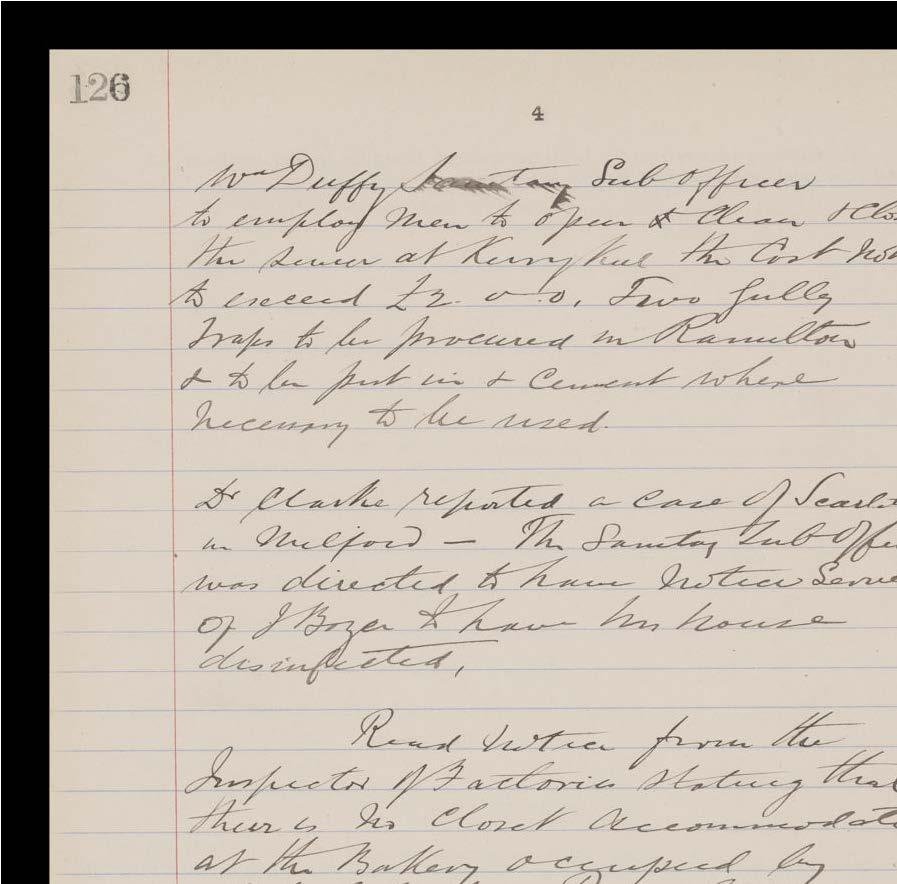 126
4
Wm Duffy Sanitary Sub Officer
to employ men to open & Clean & Clo
the sewer at Kerrykeel the Cost not
to exceed £2. 0. 0. Two Gully
Traps to be procured in Ramelton
& to be put in & cement where
necessary to be used.
Dr Clarke reported a case of Scarl
in Milford — The Sanitary Sub Offi
was directed to have Notice Serve
of J to have his house
disinfected,
Read Notice from the
Inspector of Factories stating tha
there is no Closet Accommodat
at the Bakery occupied by